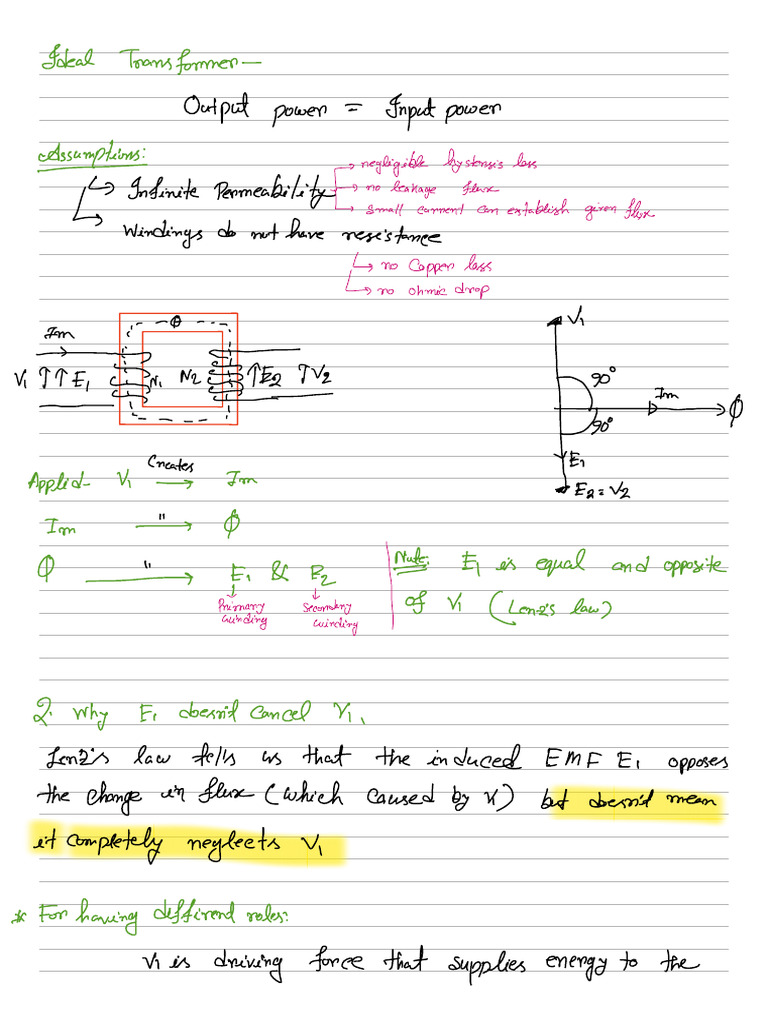 Ideal Transformer—
Output power = Input power
Assumptions:
↳ Infinite Permeability
→ negligible hystensis loss
→ no leakage flux
→ small current can establish given flux
↳ Windings do not have resistance
↳ no Copper loss
↳ no ohmic drop
Im
Φ
V1 ↑↑ E1
N1 N2
↑E2 ↑V2
V1
90°
Im
Φ
90°
E1
E2 = V2
Applied- V1 Creates → Im
Im " → Φ
Φ " → E1 & E2
Primary winding
Secondary winding
Note: E1 is equal and opposite
of V1 (Lenz's law)
Q. Why E1 doesn't cancel V1.
Lenz's law tells us that the induced EMF E1 opposes
the change in flux (which caused by V) but doesn't mean
it completely neglects V1
* For having differend roles:
V1 is driving force that supplies energy to the